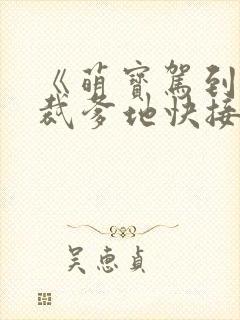 《萌寶駕到
裁爹地快接
吴惠貞